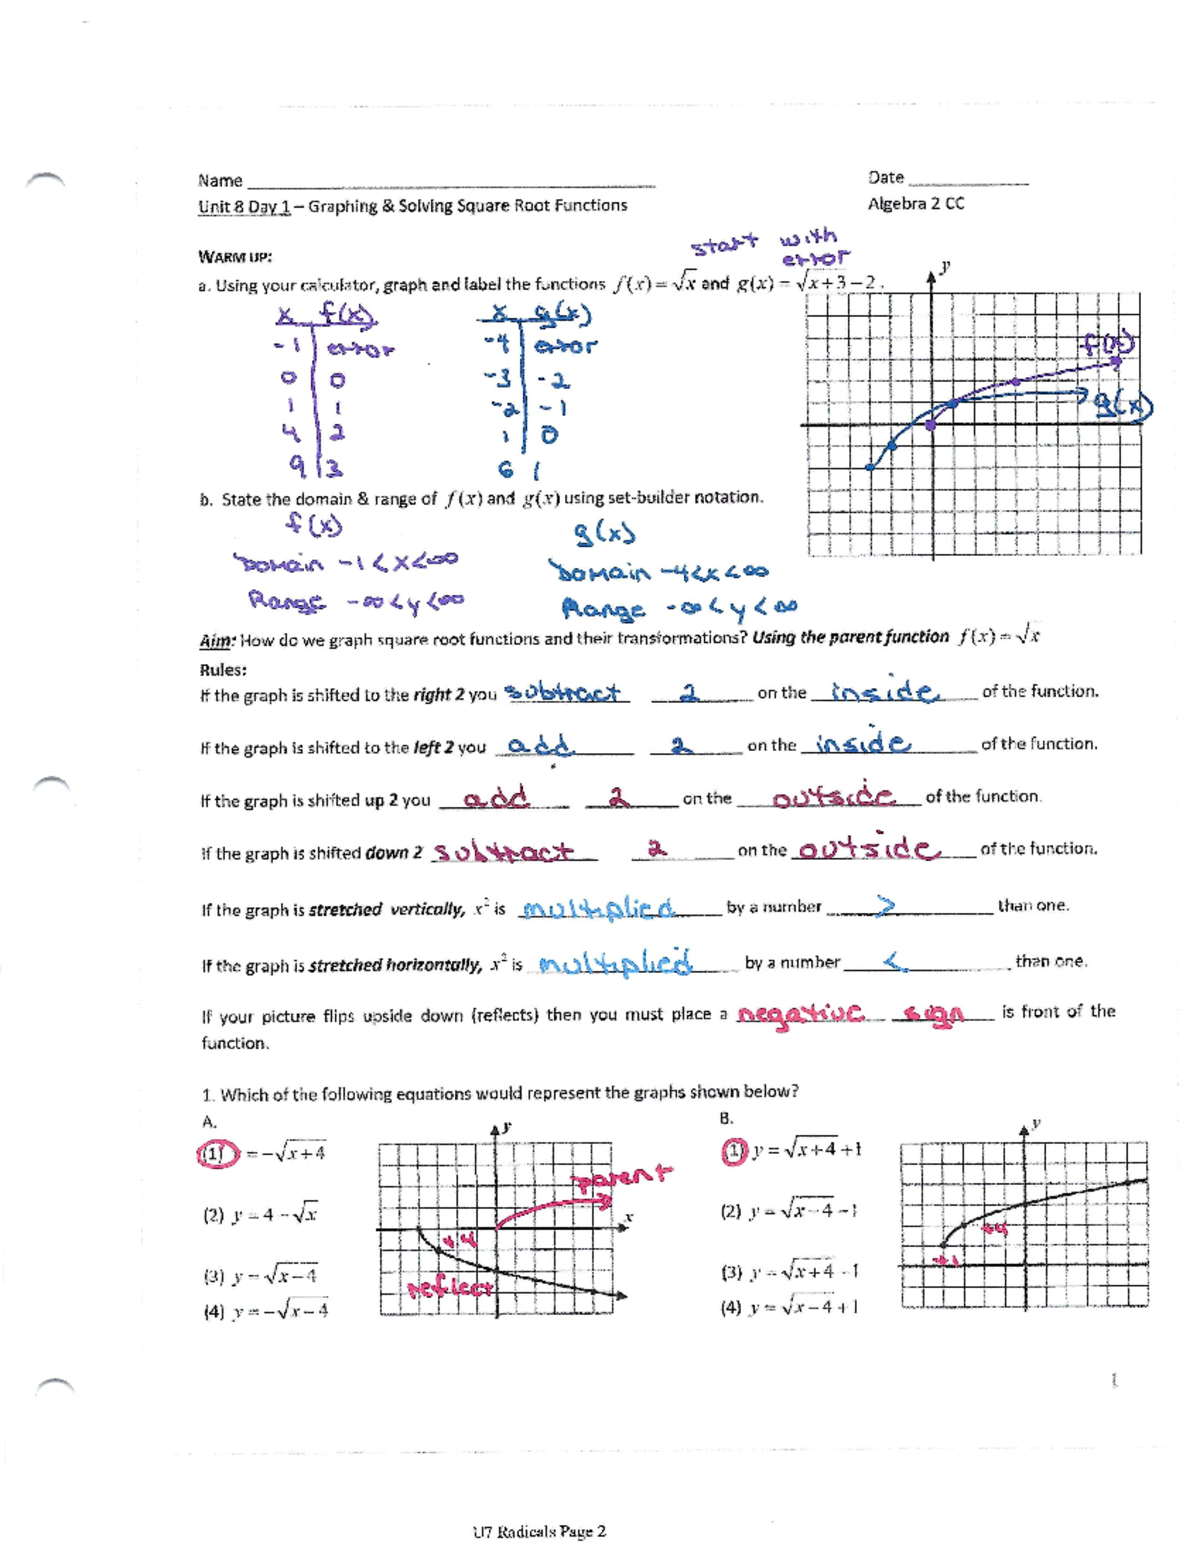 Name
Date
Unit 8 Day 1 – Graphing & Solving Square Root Functions
Algebra 2 CC
start with
error
WARM UP:
a. Using your calculator, graph and label the functions f(x) = √x and g(x) = √x+3 − 2 .
y
x f(x)
-1 error
0 0
1 1
4 2
9 3
x g(x)
-4 error
-3 -2
-2 -1
1 0
6 1
f(x)
g(x)
b. State the domain & range of f(x) and g(x) using set-builder notation.
f(x)
Domain -1<x<∞
Range -∞<y<∞
g(x)
Domain -4<x<∞
Range -∞<y<∞
Aim: How do we graph square root functions and their transformations? Using the parent function f(x) = √x
Rules:
If the graph is shifted to the right 2 you subtract 2 on the inside of the function.
If the graph is shifted to the left 2 you add 2 on the inside of the function.
If the graph is shifted up 2 you add 2 on the outside of the function.
If the graph is shifted down 2 subtract 2 on the outside of the function.
If the graph is stretched vertically, x² is multiplied by a number > than one.
If the graph is stretched horizontally, x² is multiplied by a number < than one.
If your picture flips upside down (reflects) then you must place a negative sign is front of the
function.
1. Which of the following equations would represent the graphs shown below?
A.
(1) = −√x+4
(2) y = 4 − √x
(3) y = √x−4
(4) y = −√x−4
y
parent
x
+4
reflect
B.
(1) y = √x+4 +1
(2) y = √x−4 −1
(3) y = √x+4 −1
(4) y = √x−4 +1
y
+4
+1
1
U7 Radicals Page 2